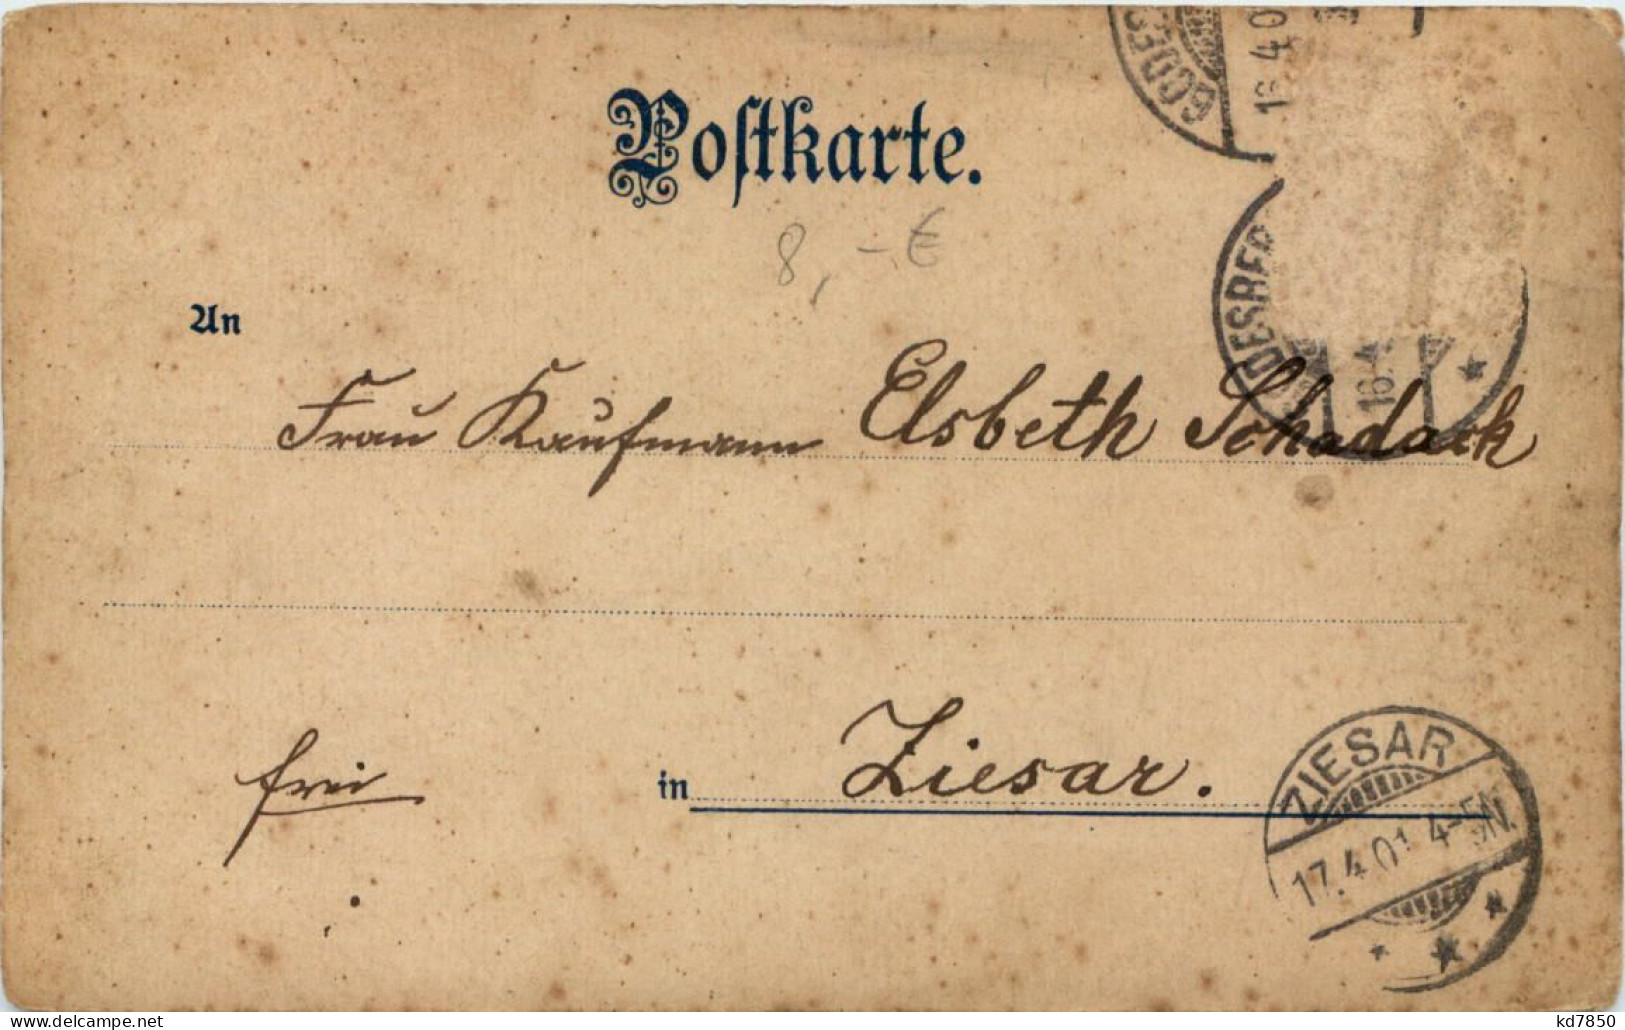 GODES
16.4.0
Postkarte.
8,-€
DESBER
16.4
An
Frau Kaufmann Elsbeth Schadack
frei
in Ziesar.
ZIESAR
17.4.01 4-5N.
kd7850